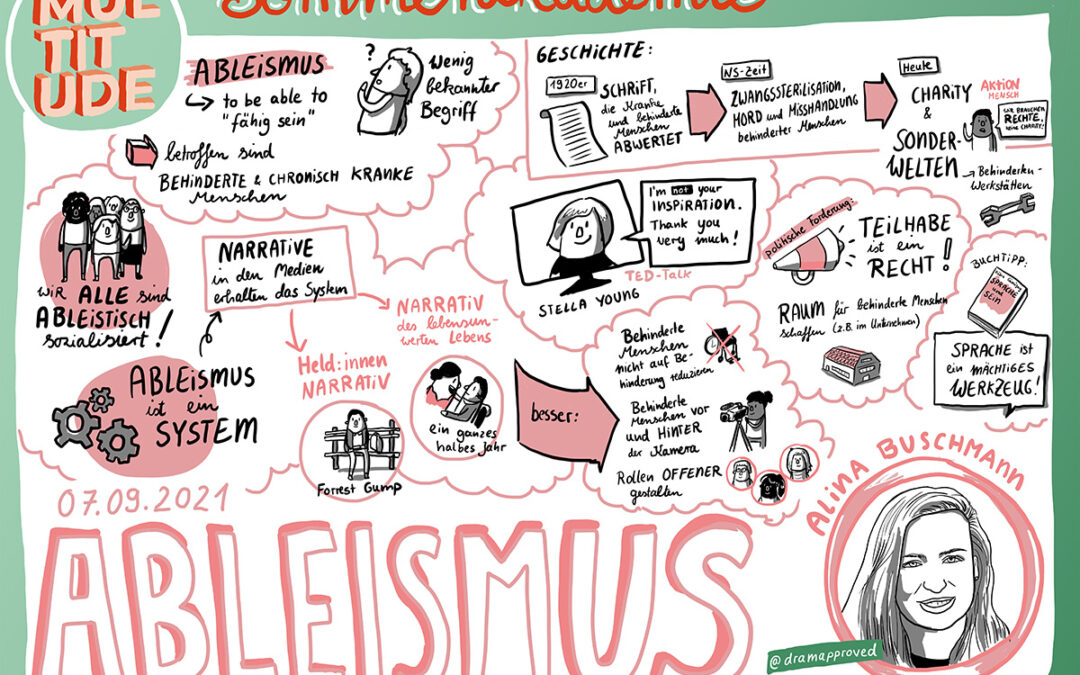 MUL
TIT
UDE
Sommerakademie
ABLEISMUS
to be able to
"fähig sein"
?
Wenig
bekannter
Begriff
betroffen sind
BEHINDERTE & CHRONISCH KRANKE
Menschen
GESCHICHTE:
1920er
SCHRIFT,
die Kranke
und behinderte
Menschen
ABWERTET
NS-Zeit
ZWANGSSTERILISATION,
MORD und MISSHANDLUNG
behinderter Menschen
Heute
CHARITY
&
SONDER-
WELTEN
AKTION
MENSCH
WIR BRAUCHEN
RECHTE,
KEINE CHARITY!
Behinderten-
Werkstätten
wir ALLE sind
ABLEISTISCH
sozialisiert!
NARRATIVE
in den Medien
erhalten das System
ABLEISMUS
ist ein
SYSTEM
Held:innen
NARRATIV
Forrest Gump
NARRATIV
des lebensun-
werten Lebens
ein ganzes
halbes Jahr
I'm not your
INSPIRATION.
Thank you
very much!
TED-Talk
STELLA YOUNG
besser:
Behinderte
Menschen
nicht auf Be-
hinderung reduzieren
Behinderte
Menschen vor
und HINTER
der Kamera
Rollen OFFENER
gestalten
politische Forderung:
TEILHABE
ist ein
RECHT!
RAUM für behinderte Menschen
schaffen (z.B. im Unternehmen)
BUCHTIPP:
SPRACHE
und
SEIN
SPRACHE ist
ein MÄCHTIGES
WERKZEUG!
07.09.2021
ABLEISMUS
ALINA BUSCHMANN
@dramapproved